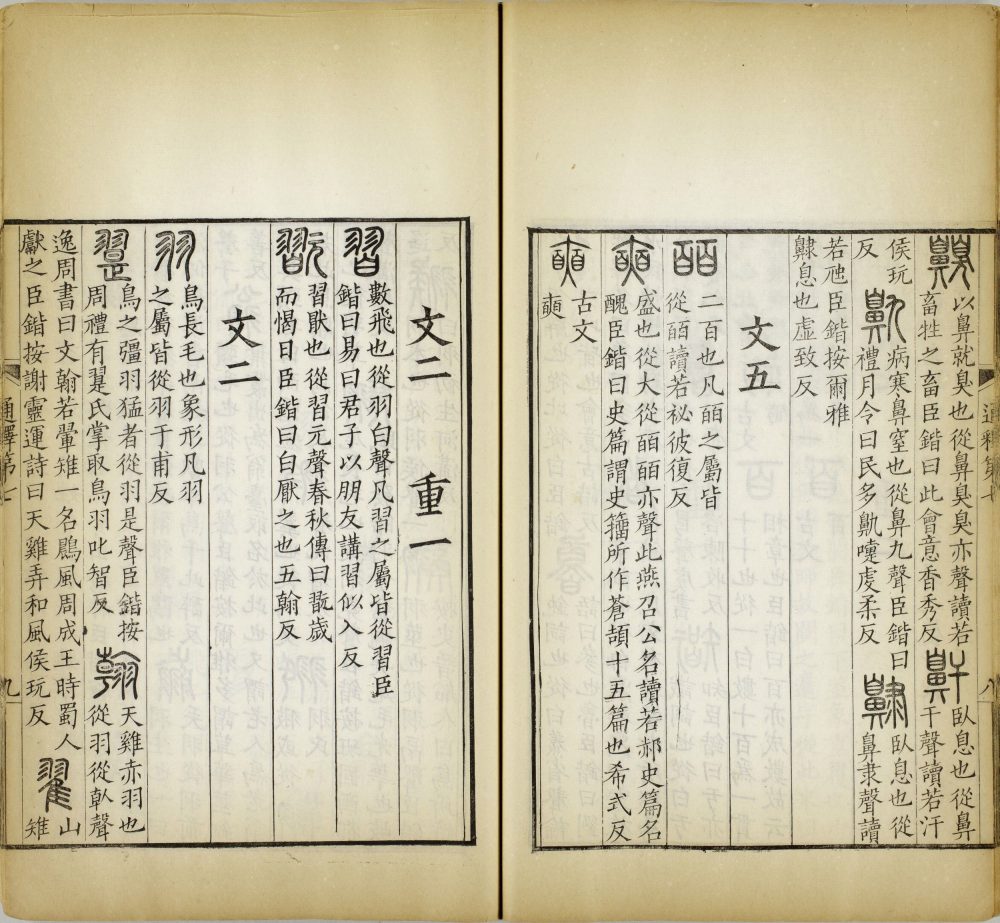 齅以鼻就臭也從鼻臭臭亦聲讀若
畜牲之畜臣鍇曰此會意香秀反
鼾臥息也從鼻
干聲讀若汗
侯玩
反
鼽病寒鼻窒也從鼻九聲臣鍇曰
禮月令曰民多鼽嚏虔柔反
齂臥息也從
鼻隶聲讀
若虺臣鍇按爾雅
齂息也虛致反
文五
皕二百也凡皕之屬皆
從皕讀若祕彼復反
奭盛也從大從皕皕亦聲此燕召公名讀若郝史篇名
醜臣鍇曰史篇謂史籀所作蒼頡十五篇也希式反
奭古文
奭
通釋第七 八
文二 重一
習數飛也從羽白聲凡習之屬皆從習臣
鍇曰易曰君子以朋友講習似入反
翫習猒也從習元聲春秋傳曰翫歲
而愒日臣鍇曰白厭之也五翰反
文二
羽鳥長毛也象形凡羽
之屬皆從羽于甫反
翨鳥之彊羽猛者從羽是聲臣鍇按
周禮有翨氏掌取鳥羽叱智反
翰天雞赤羽也
從羽從倝聲
逸周書曰文翰若翬雉一名鷐風周成王時蜀人
獻之臣鍇按謝靈運詩曰天雞弄和風侯玩反
翟山
雉
通釋第七 九